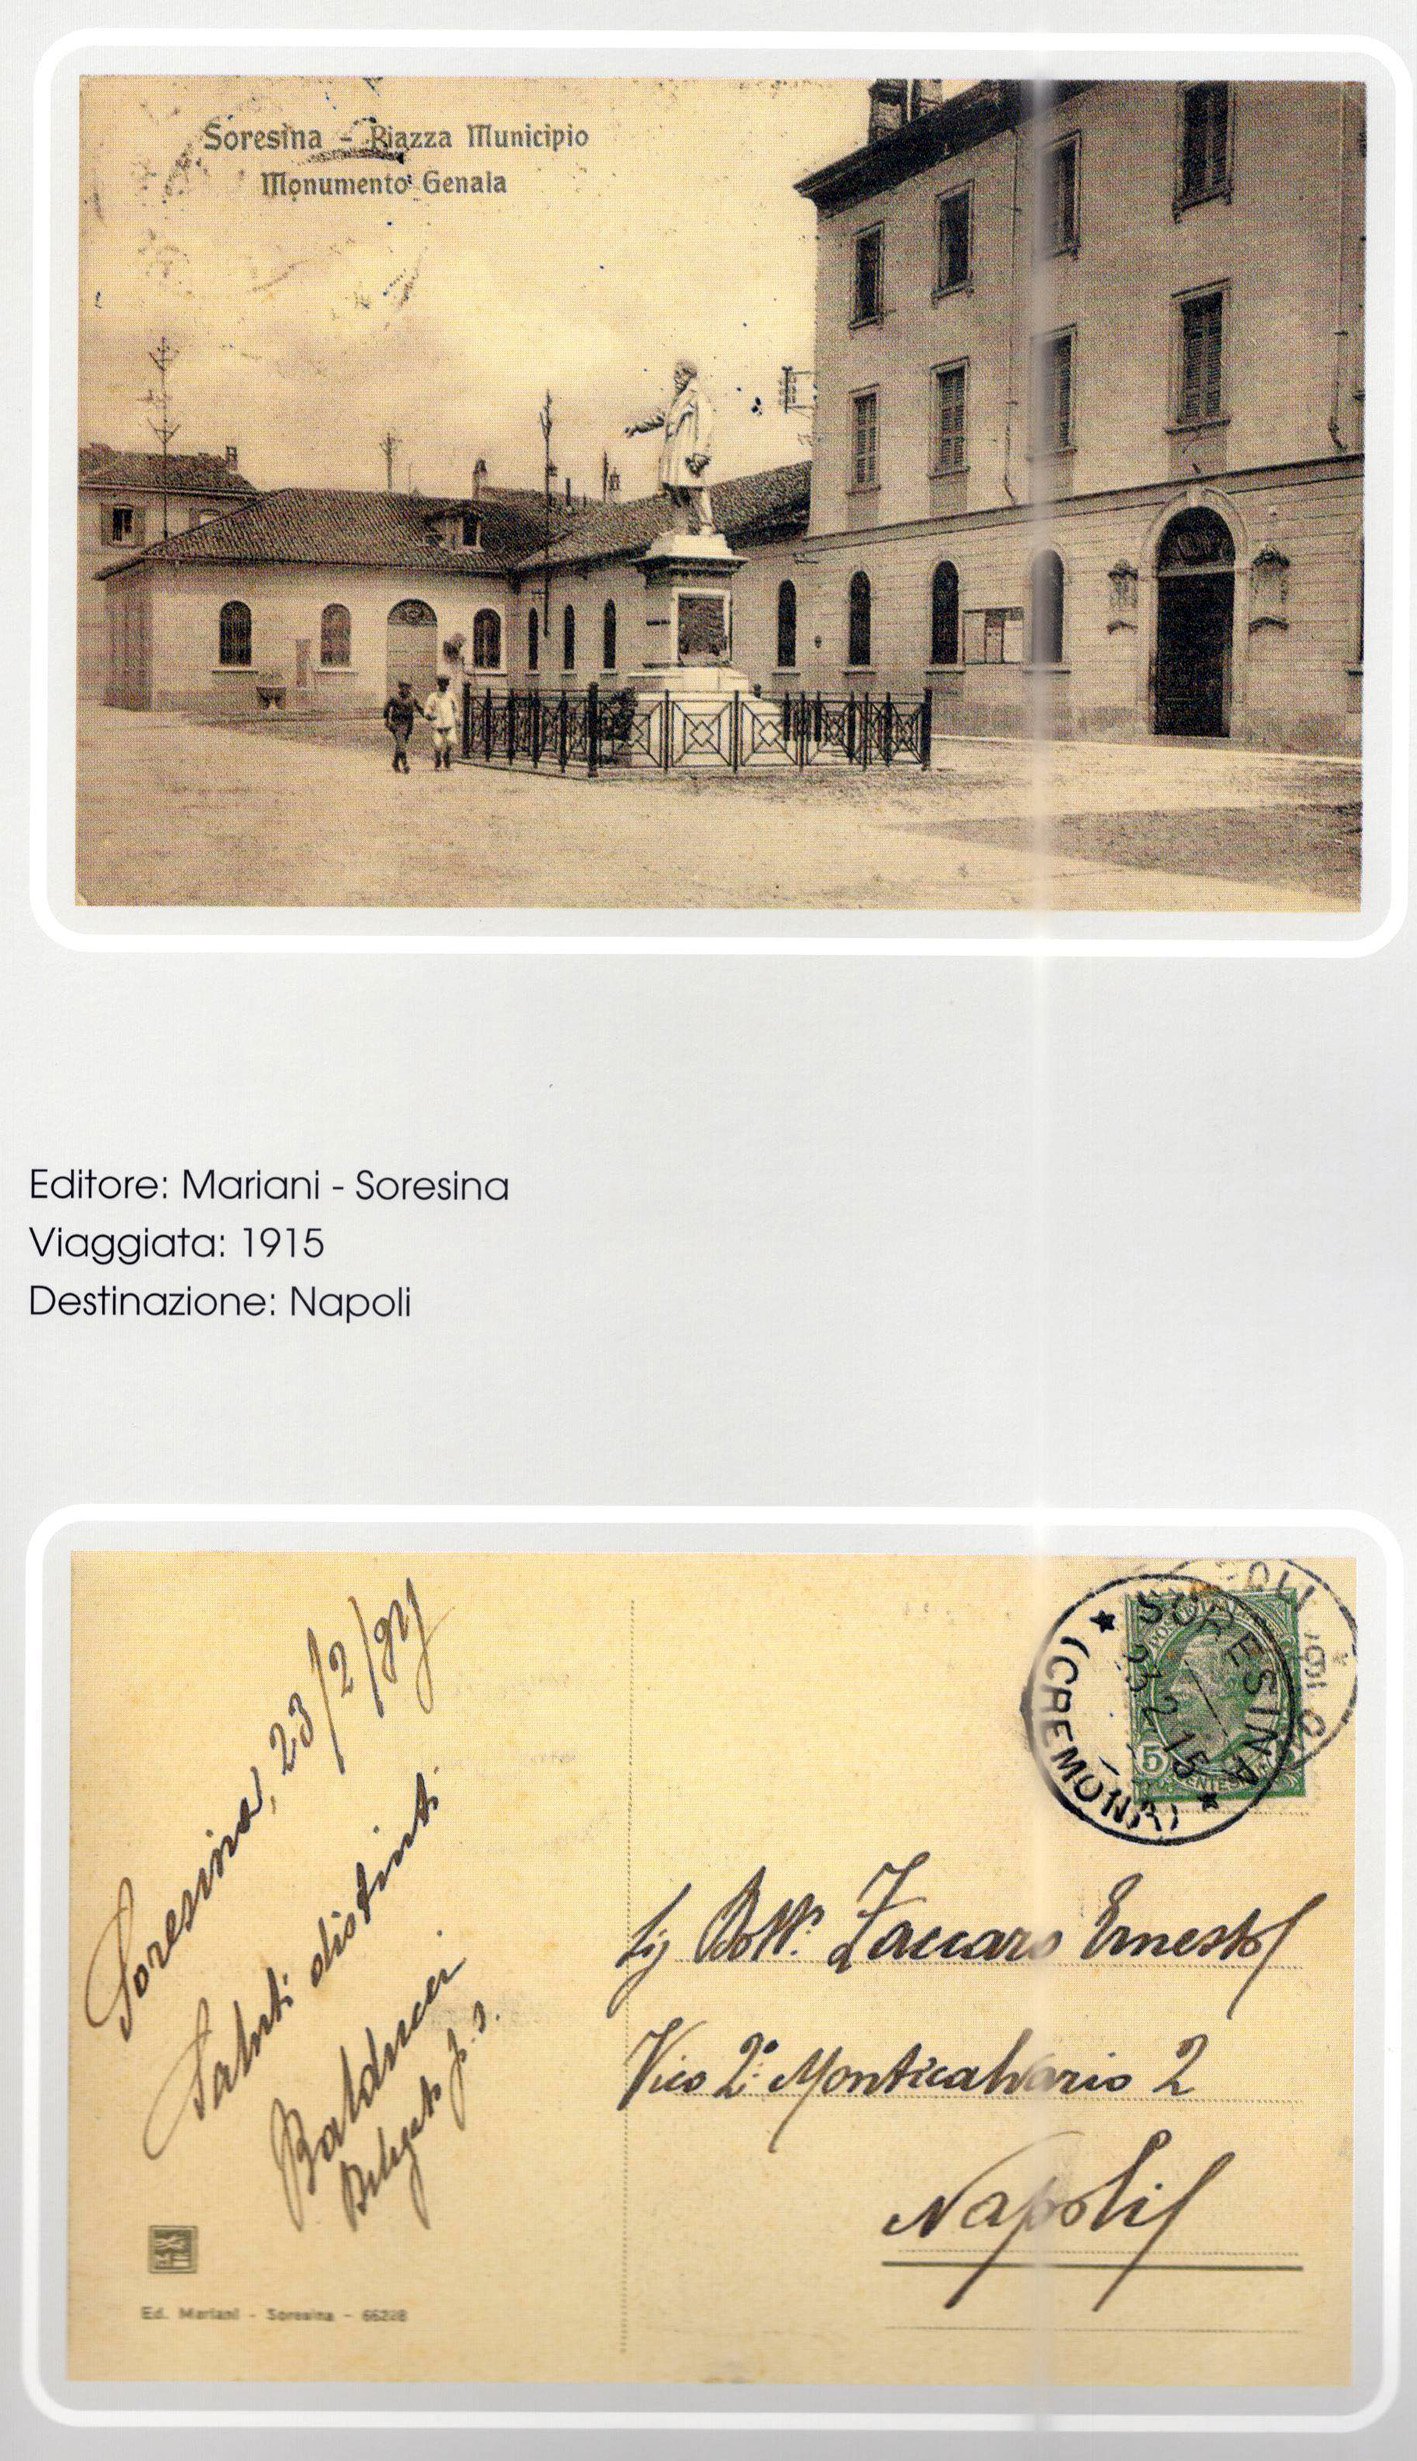 Soresina - Piazza Municipio
Monumento Genala
Editore: Mariani - Soresina
Viaggiata: 1915
Destinazione: Napoli
Soresina, 23/2/915
Saluti distinti
Balducci
Delegato p. s.
Ed. Mariani - Soresina - 66228
SORESINA
23 2 15
(CREMONA)
5
Sig Dott. Zaccaro Ernesto
Vico 2° Montecalvario 2
Napoli